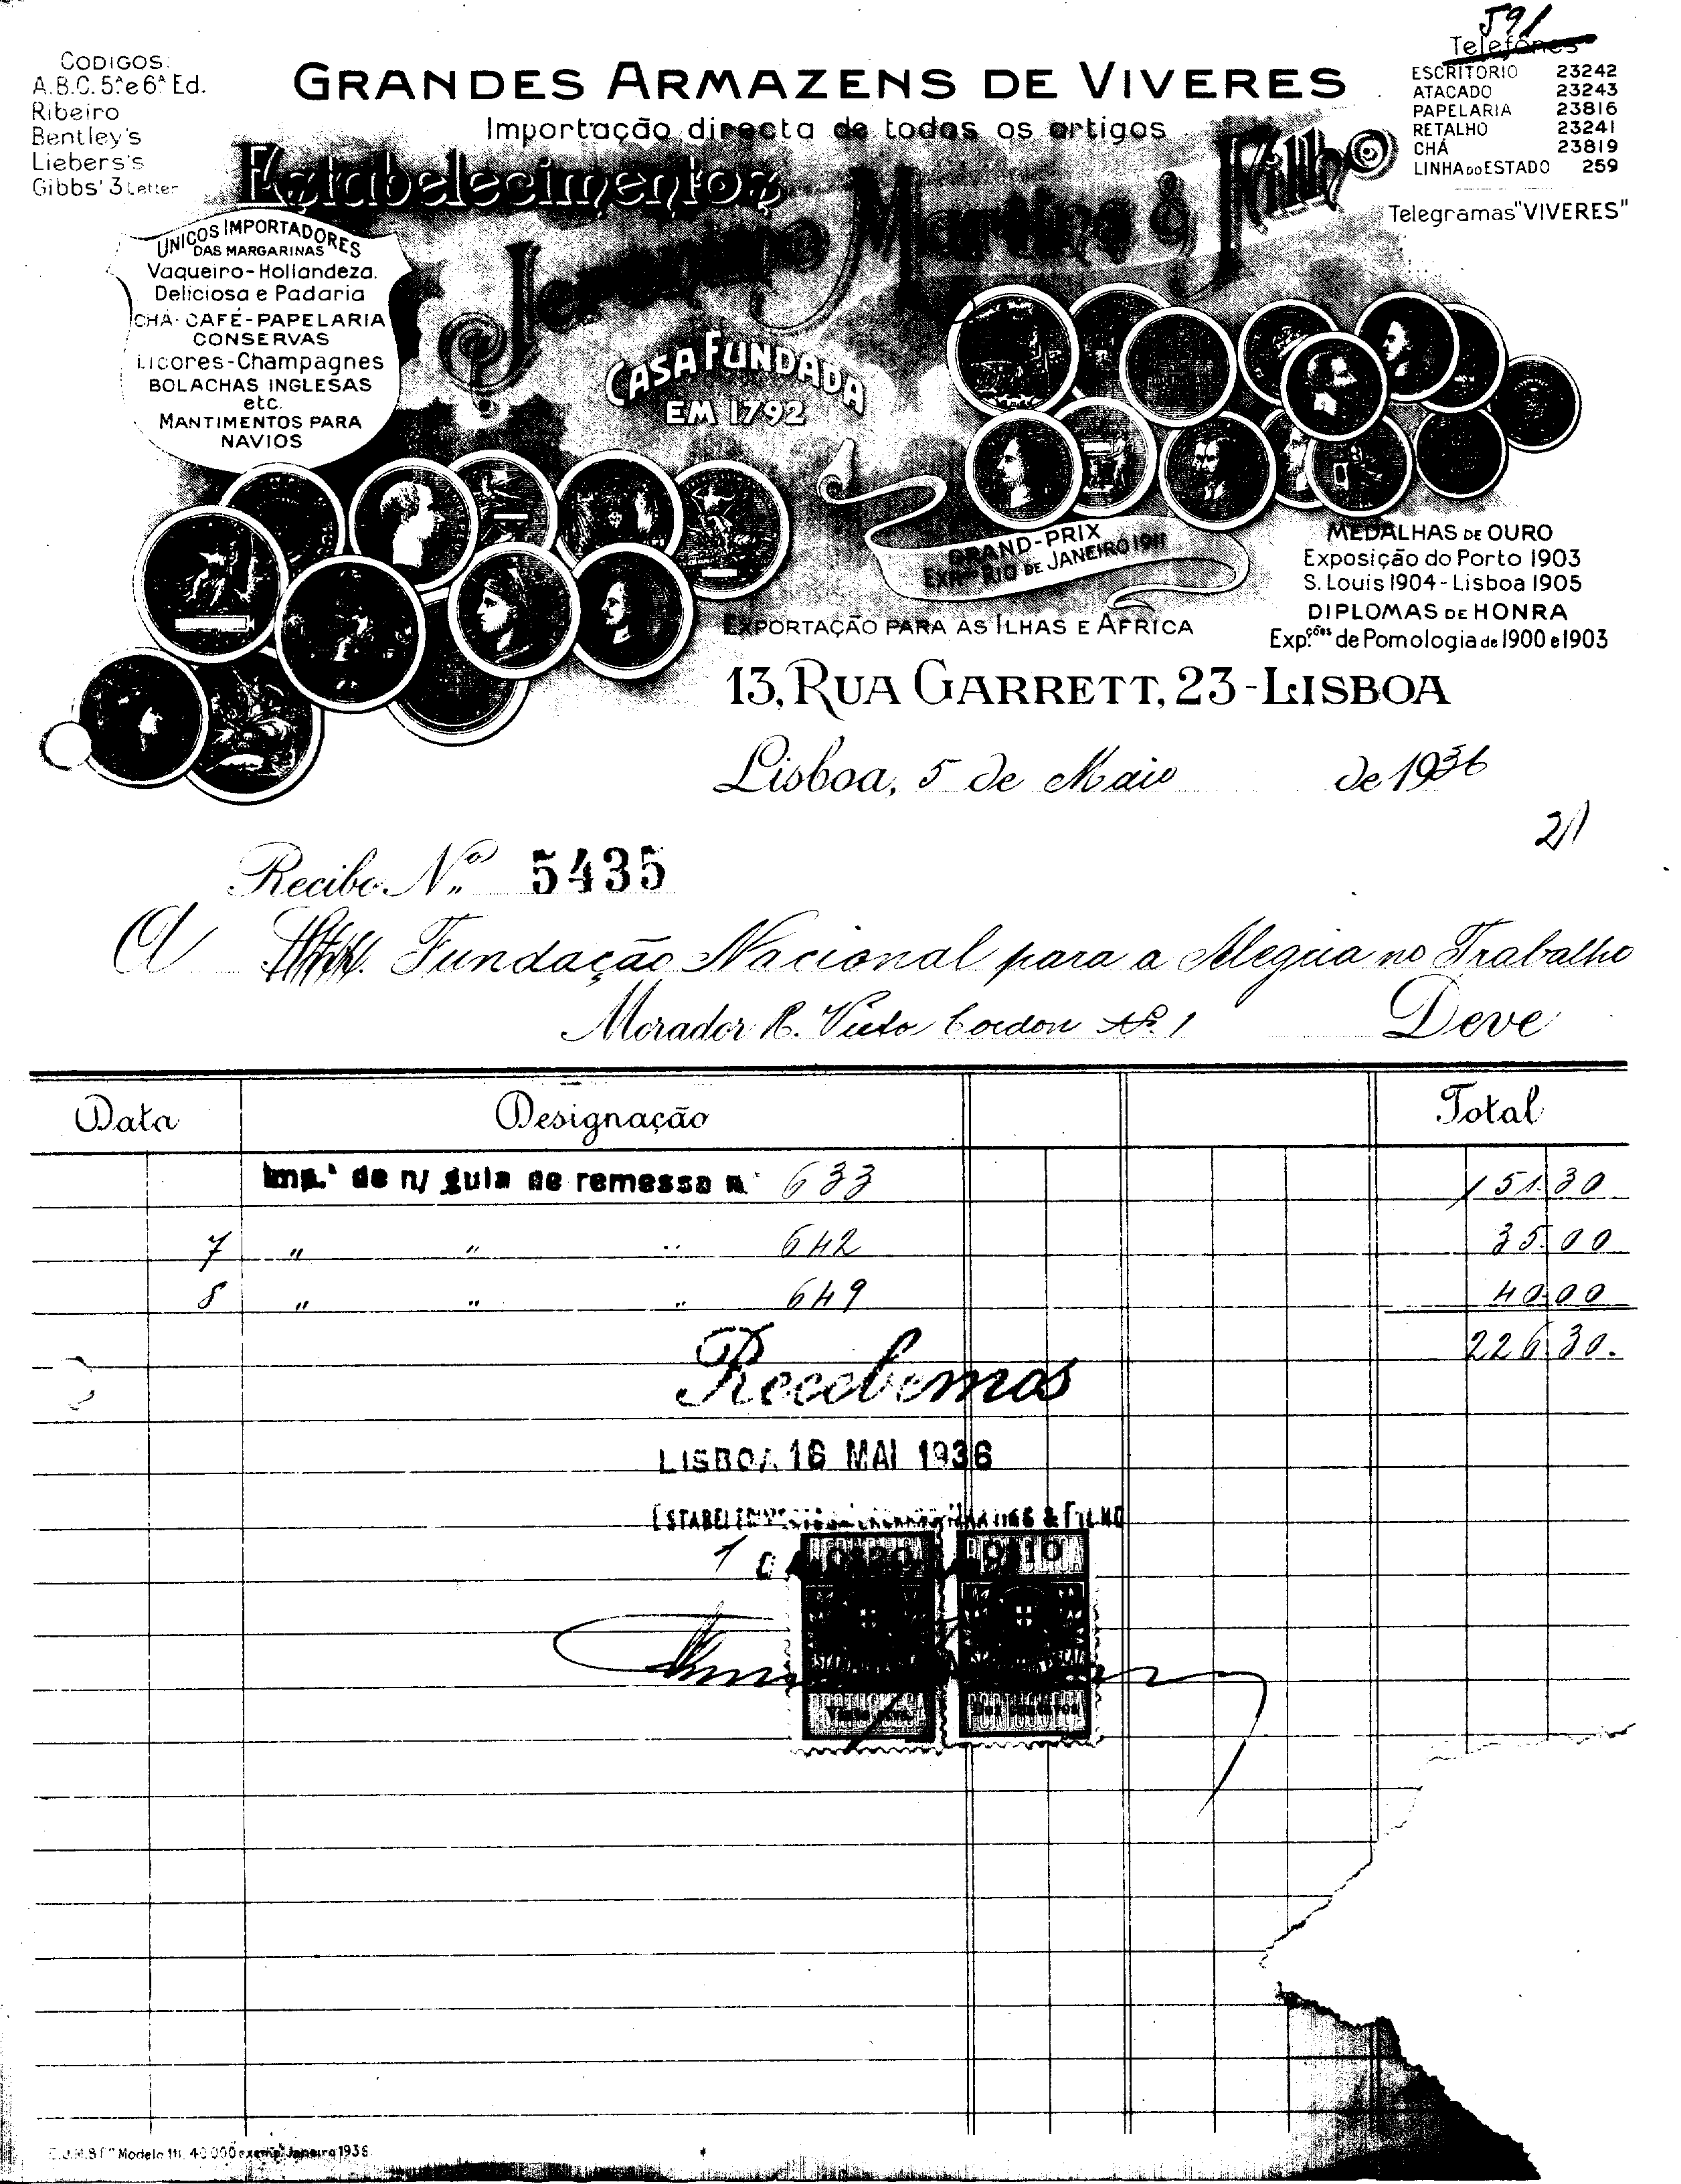 591
CODIGOS:
A.B.C. 5ª e 6ª Ed.
Ribeiro
Bentley's
Liebers's
Gibbs' 3 Letter
GRANDES ARMAZENS DE VIVERES
Importação directa de todos os artigos
Estabelecimentos
Jeronymo Martins & Filho
Telefones
ESCRITORIO 23242
ATACADO 23243
PAPELARIA 23816
RETALHO 23241
CHÁ 23819
LINHA DO ESTADO 259
Telegramas "VIVERES"
UNICOS IMPORTADORES
DAS MARGARINAS
Vaqueiro-Hollandeza.
Deliciosa e Padaria
CHÁ-CAFÉ-PAPELARIA
CONSERVAS
Licores-Champagnes
BOLACHAS INGLESAS
etc.
MANTIMENTOS PARA
NAVIOS
CASA FUNDADA
EM 1792
GRAND-PRIX
RIO DE JANEIRO 1911
EXPORTAÇÃO PARA AS ILHAS E AFRICA
MEDALHAS DE OURO
Exposição do Porto 1903
S. Louis 1904-Lisboa 1905
DIPLOMAS DE HONRA
Exp.ções de Pomologia de 1900 e 1903
13, RUA GARRETT, 23-LISBOA
Lisboa, 5 de Maio de 1936
21
Recibo N.º 5435
A Fundação Nacional para a Alegria no Trabalho
Morador R. Victo Cordon Nº 1 Deve
Data Designação Total
Imp.ª de n/ guia de remessa n.º 633 151.30
7 " " " 642 35.00
8 " " " 649 40.00
226.30.
Recebemos
LISBOA 16 MAI 1936
ESTABELECIMENTOS JERONYMO MARTINS & FILHO
0$20 0$10
Vinte ctvs. Dez centavos
E.J.M.& F.º Modelo 111, 40.000 exemp. Janeiro 1936